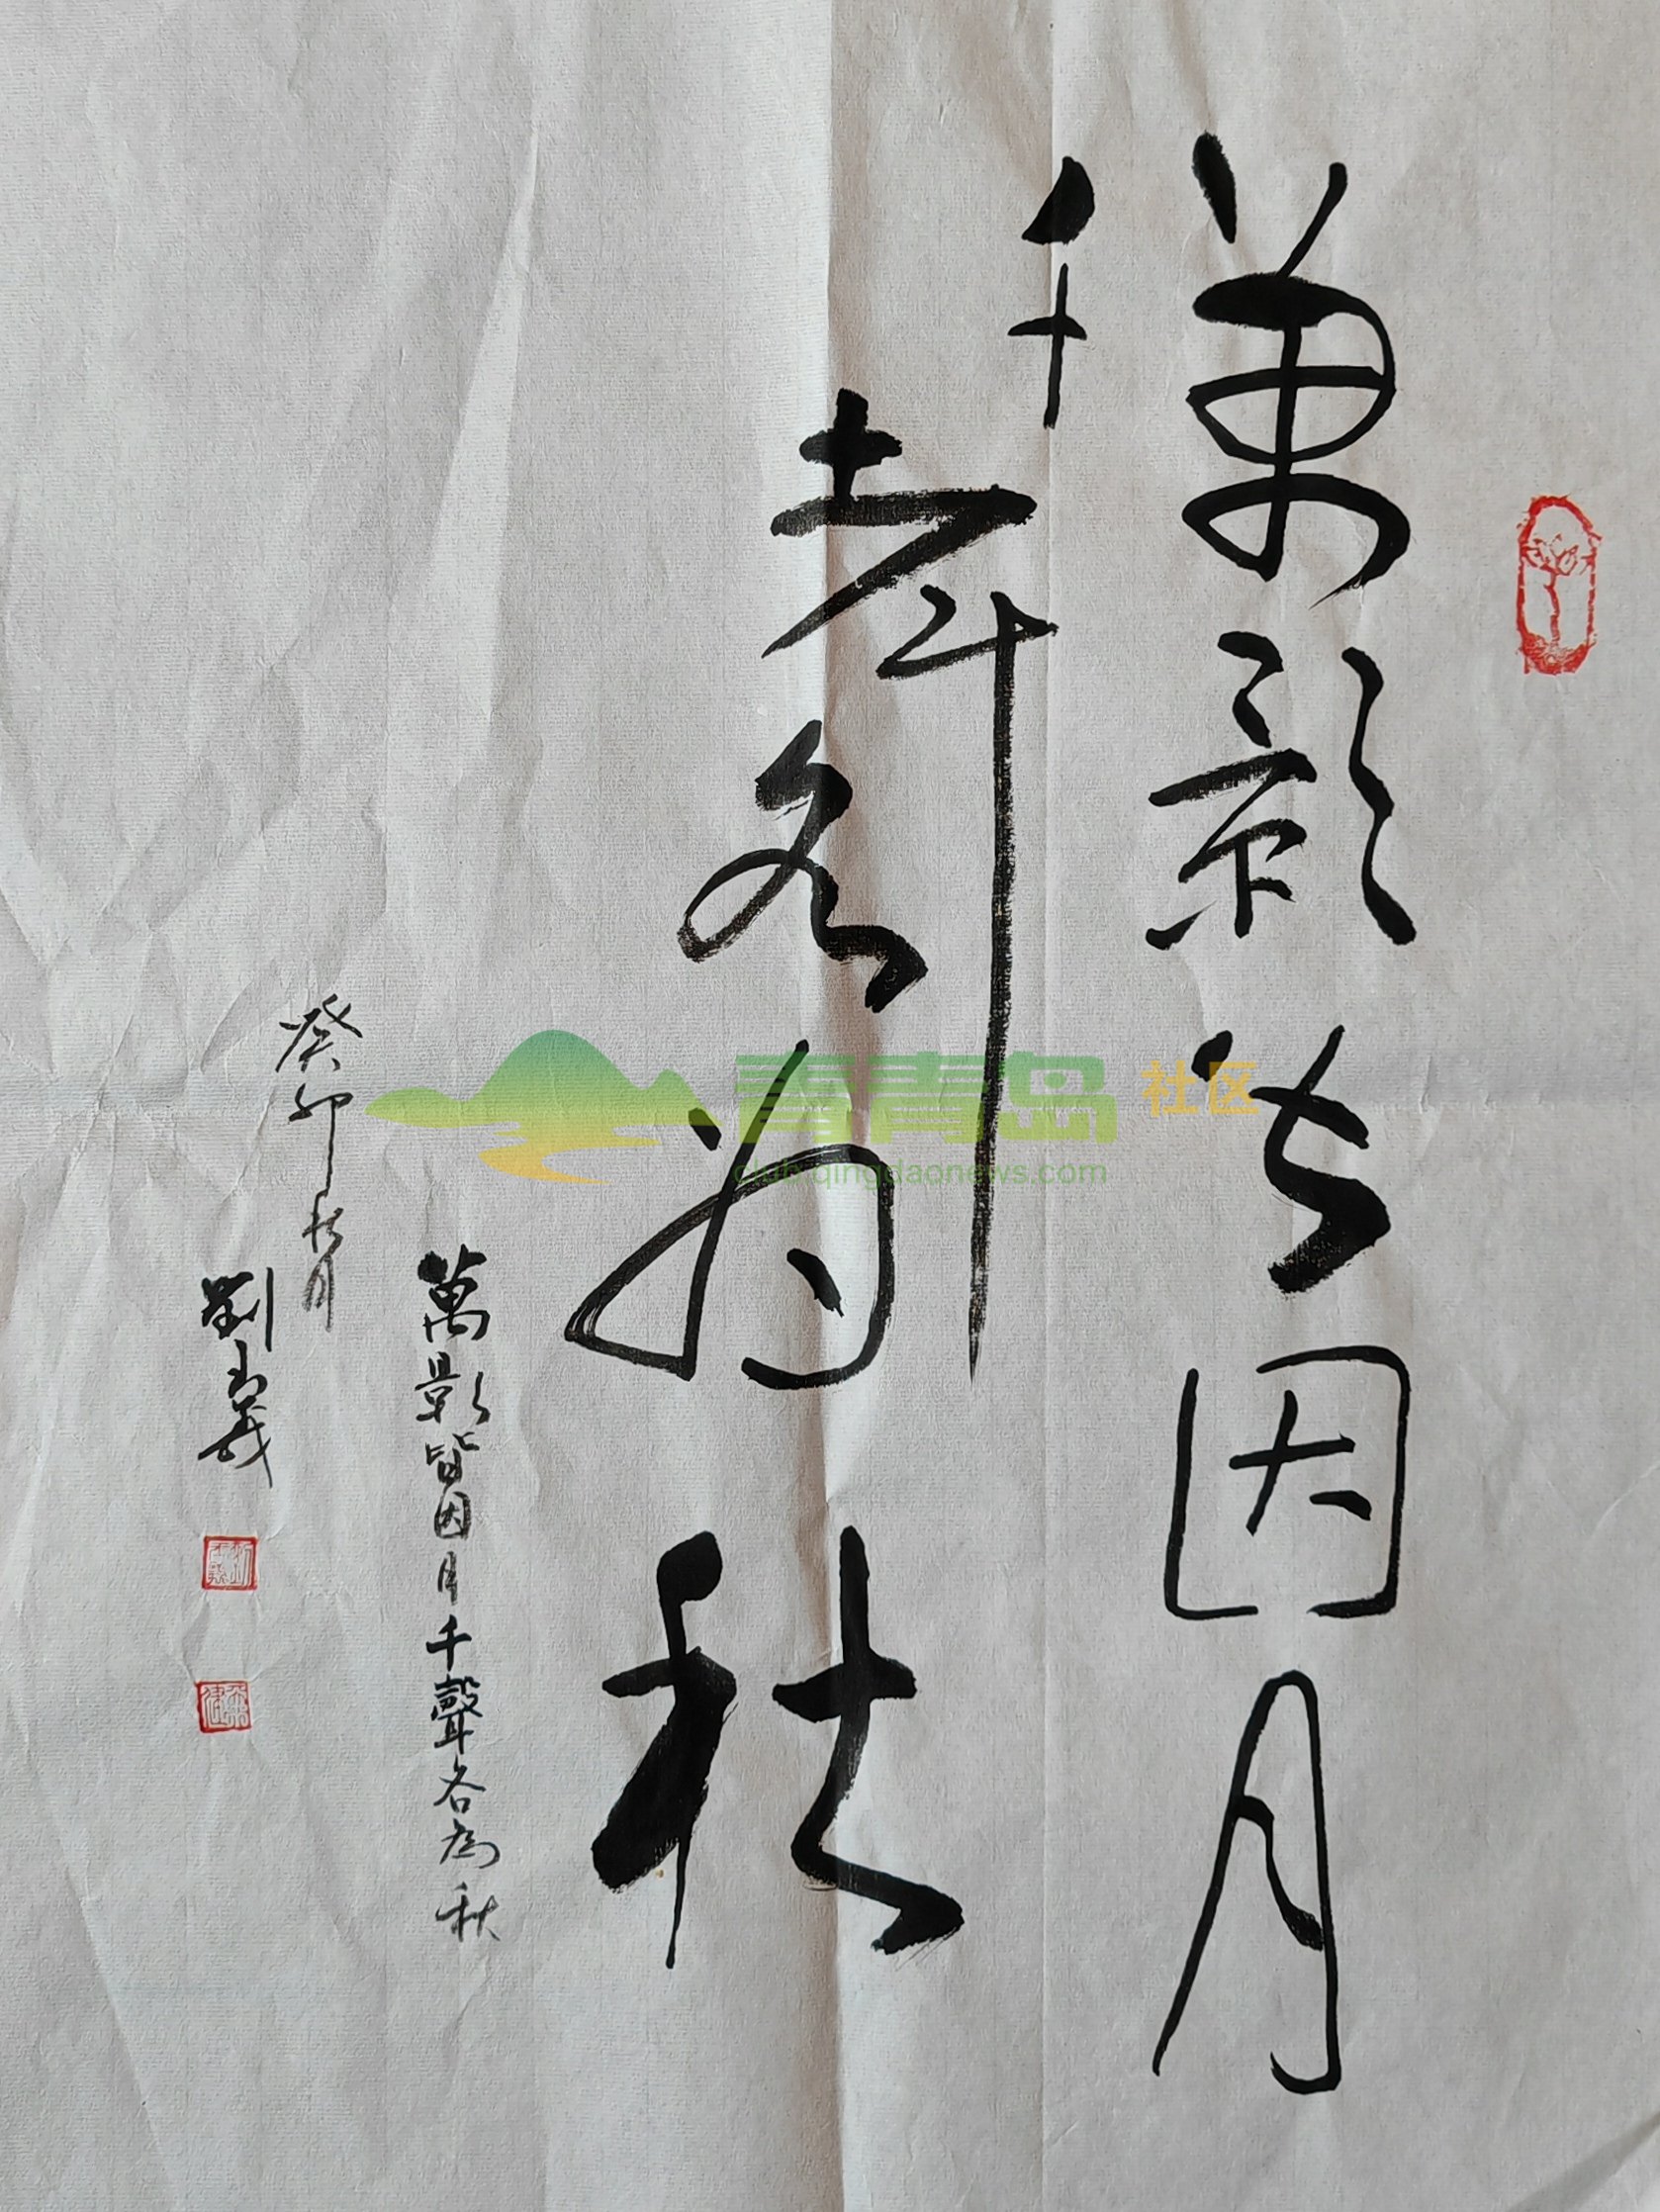 萬影皆因月
千聲各為秋
萬影皆因月千聲各為秋
癸卯秋月
劉
青青岛 社区
club.qingdaonews.com